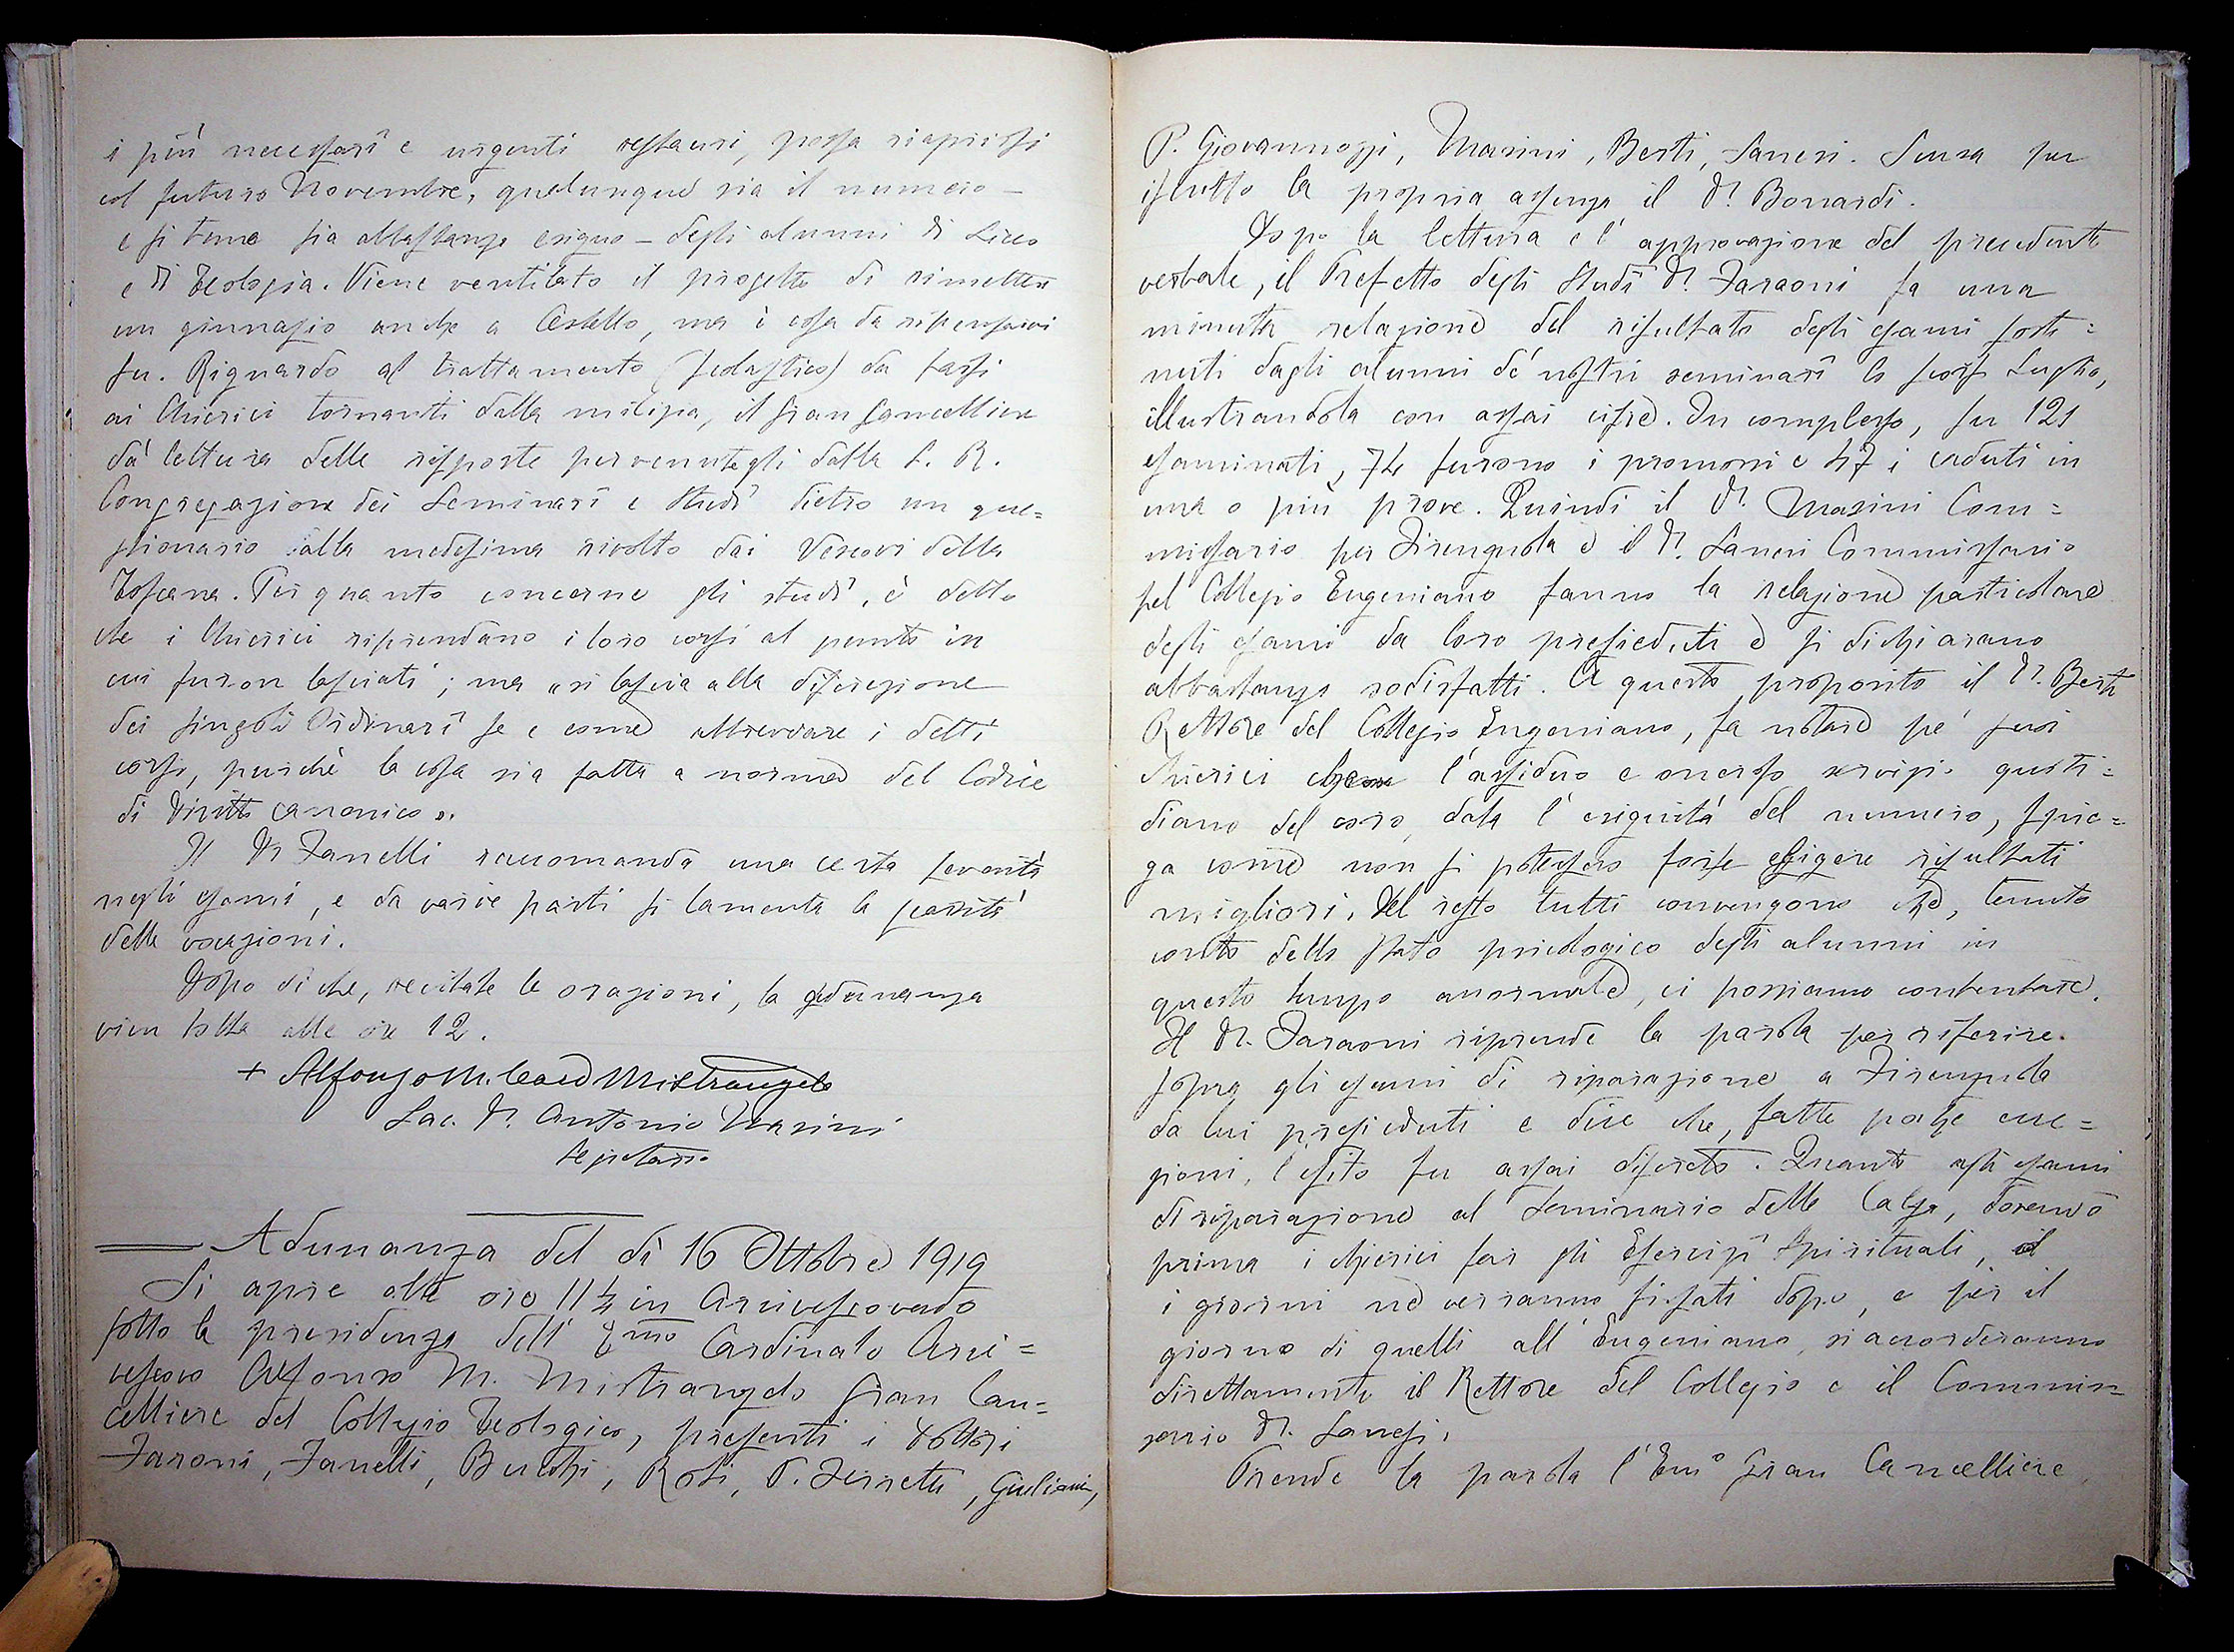 i più necessarî e urgenti restauri, possa riaprirsi
col futuro Novembre, qualunque sia il numero —
e si teme sia abbastanza esiguo — degli alunni di Liceo
e di Teologia. Viene ventilato il progetto di rimetter
un ginnasio anche a Cestello, ma è cosa da ripensarvi
su. Riguardo al trattamento (scolastico) da farsi
ai Chierici tornanti dalla milizia, il Gran Cancelliere
dà lettura delle risposte pervenutegli dalla S. R.
Congregazione dei Seminarî e Studî dietro un que=
stionario alla medesima rivolto dai Vescovi della
Toscana. Per quanto concerne gli studî, è detto
che i Chierici riprendano i loro corsi al punto in
cui furon lasciati; ma si lascia alla discrezione
dei singoli Ordinarî se e come abbreviare i detti
corsi, purchè la cosa sia fatta a norma del Codice
di diritto canonico.
Il Dr. Zanelli raccomanda una certa severità
negli esami, e da varie parti si lamenta la scarsità
delle vocazioni.
Dopo di che, recitate le orazioni, la adunanza
vien tolta alle ore 12.
+ Alfonso M. Card Mistrangelo
Sac. Dr. Antonio Marini
Segretario
Adunanza del dì 16 Ottobre 1919
Si apre alle ore 11 1/4 in Arcivescovado
sotto la presidenza dell' Emo Cardinale Arci=
vescovo Alfonso M. Mistrangelo Gran Can=
celliere del Collegio Teologico, presenti i Dottori
Faraoni, Zanelli, Bucchi, Roti, P. Ferretti, Giuliani,
P. Giovannozzi, Marini, Berti, Sanesi. Scusa per
iscritto la propria assenza il Dr. Bonardi.
Dopo la lettura e l' approvazione del precedente
verbale, il Prefetto degli Studî Dr. Faraoni fa una
minuta relazione del risultato degli esami soste=
nuti dagli alunni de' nostri seminarî lo scorso Luglio,
illustrandola con assai cifre. In complesso, su 121
esaminati, 74 furono i promossi e 47 i caduti in
una o più prove. Quindi il Dr. Marini Com=
missario per Firenzuola e il Dr. Sanesi Commissario
pel Collegio Eugeniano fanno la relazione particolare
degli esami da loro presieduti e si dichiarano
abbastanza sodisfatti. A questo proposito il Dr. Berti
Rettore del Collegio Eugeniano, fa notare pe' suoi
Chierici che l'assiduo e oneroso servizio quoti=
diano del coro, data l' esiguità del numero, spie=
ga come non si potessero forse esigere risultati
migliori. Del resto tutti convengono che, tenuto
conto dello stato psicologico degli alunni in
questo tempo anormale, ci possiamo contentare.
Il Dr. Faraoni riprende la parola per riferire
sopra gli esami di riparazione a Firenzuola
da lui presieduti e dice che, fatte poche ecce=
zioni, l'esito fu assai discreto. Quanto agli esami
di riparazione al Seminario della Calza, dovendo
prima i chierici far gli Esercizî Spirituali,
i giorni ne verranno fissati dopo, e per il
giorno di quelli all' Eugeniano, si accorderanno
direttamente il Rettore del Collegio e il Commis=
sario Dr. Sanesi.
Prende la parola l' Emo Gran Cancelliere